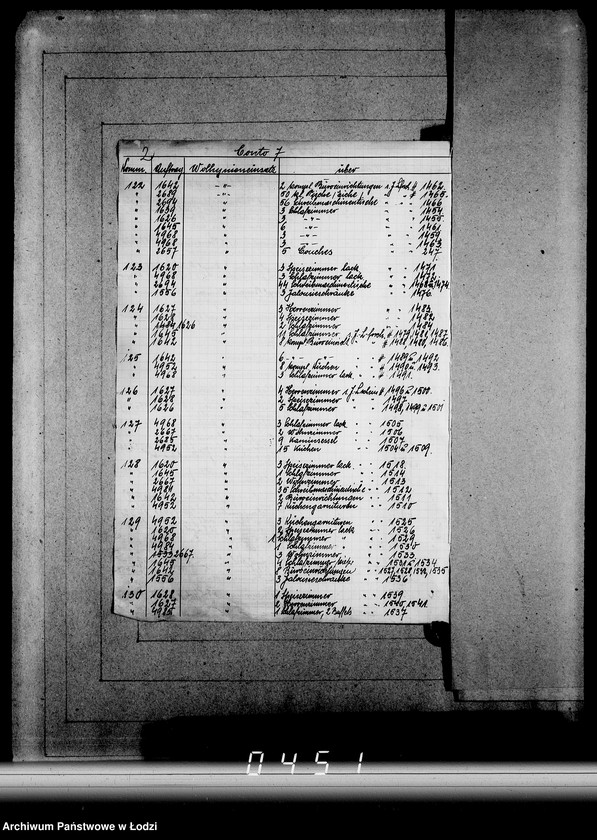 2 Conto 7
Komm. Auftrag Wolhynieneinsatz über
122 1642 -"- 2 kompl Büroeinrichtungen 1462
" 2689 " 50 1465
" 2694 " 56 Schreibmaschinentische 1466
" " 3 Schlafzimmer " " 1454
" 1626 " 3 -"- " " 1455
" 1645 " 6 " " " 1461
" 4968 " 6 " " " 1459
" 4968 " 3 -"- " " 1463
" 2657 " 5 Couches " " 247
123 1620 " 3 Speisezimmer lack " " 1471
" 4968 " 3 Schlafzimmer lack " " 1472
" 2694 " 44 Schreibmaschinentische " " 1474
" 1556 " 3 Jalousieschränke " " 1476
124 1627 " 3 Herrenzimmer " " 1483
" 1628 " 4 Speisezimmer " " 1482
" 1626 " 2 Schlafzimmer " " 1484
" 1645 " 11 Schlafzimmer
" 1642 " 8 kompl Büroeinricht.
125 1642 " 6 -"- " " # 1492
" 4952 " 8 kompl Küchen " " # 1493
" 4968 " 3 Schlafzimmer lack " " # 1491
126 1627 " 4 Herrenzimmer
" 1628 " 2 Speisezimmer " " 1497
" 1626 " 5 Schlafzimmer " " 1498, 1499 u 1501
127 4968 " 3 Schlafzimmer lack " " 1505
" 2667 " 2 Wohnzimmer " " 1506
" 2685 " 9 Kaminsessel " " 1507
" 4952 " 15 Küchen " " 1509
128 1620 " 3 Speisezimmer lack " " 1518
" 1645 " 1 Schlafzimmer " " 1514
" 2667 " 2 Wohnzimmer " " 1513
" 4984 " 35 Schreibmaschinentische " " 1512
" 1642 " 2 Büroeinrichtungen " " 1511
" 4952 " 7 Küchengarnituren " " 1510
129 4952 " 3 Küchengarnituren " " 1525
" 1620 " 2 Speisezimmer lack " " 1526
" 4968 " 1 Schlafzimmer " " 1529
" 4984 " 1 Schlafzimmer " " 1530
" 2667 " 3 Wohnzimmer " " 1533
" 1645 " 4 Schlafzimmer " " 1534
" 1642 " Büroeinrichtungen " " 1535
" 1556 " 3 Jalousieschränke " " 1536
130 1628 " 1 Speisezimmer " " 1539
" 1627 " 2 Herrenzimmer " " 1540, 1541
" 4985 " 1 Schlafzimmer, 2 Buffets " " 1537
0451
Archiwum Państwowe w Łodzi